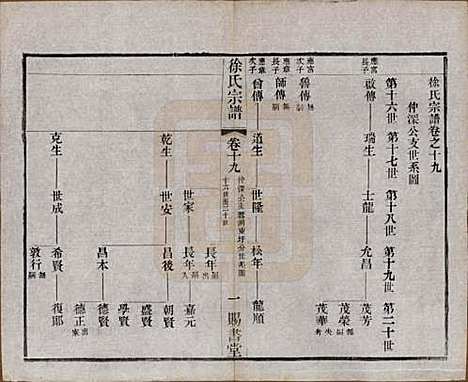 徐氏宗譜卷之十九
仲深公支世系圖
第十六世 第十七世 第十八世 第十九世 第二十世
應宮長子
啟傳 瑞生 士龍 允昌 茂芳
茂榮
茂華
應宮次子
魯傳
應章長子
師傳
應章次子
曾傳 道生 世隆 松年 龍順
徐氏宗譜 卷十九 一 賜書堂
長年
世家 長年 嘉元
乾生 世安 昌後 朝賢
盛賢
學賢
昌本 德賢
德正
克生 世成 希賢 復郎
敦行